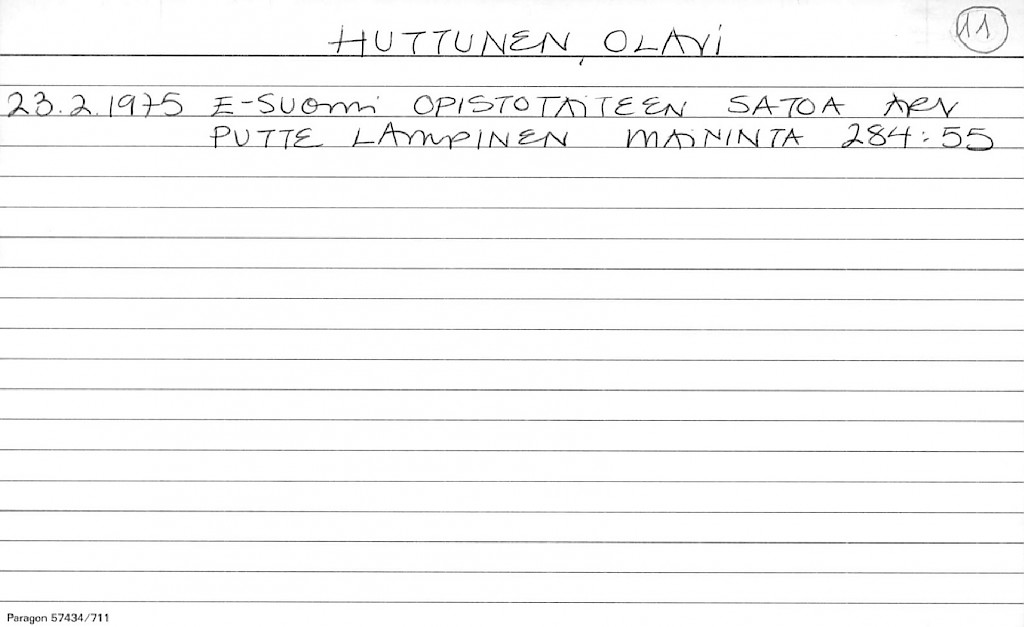 HUTTUNEN, OLAVI
11
23.2.1975 E-SUOMI OPISTOTAITEEN SATOA ARV
PUTTE LAMPINEN MAININTA 284:55
Paragon 57434/711